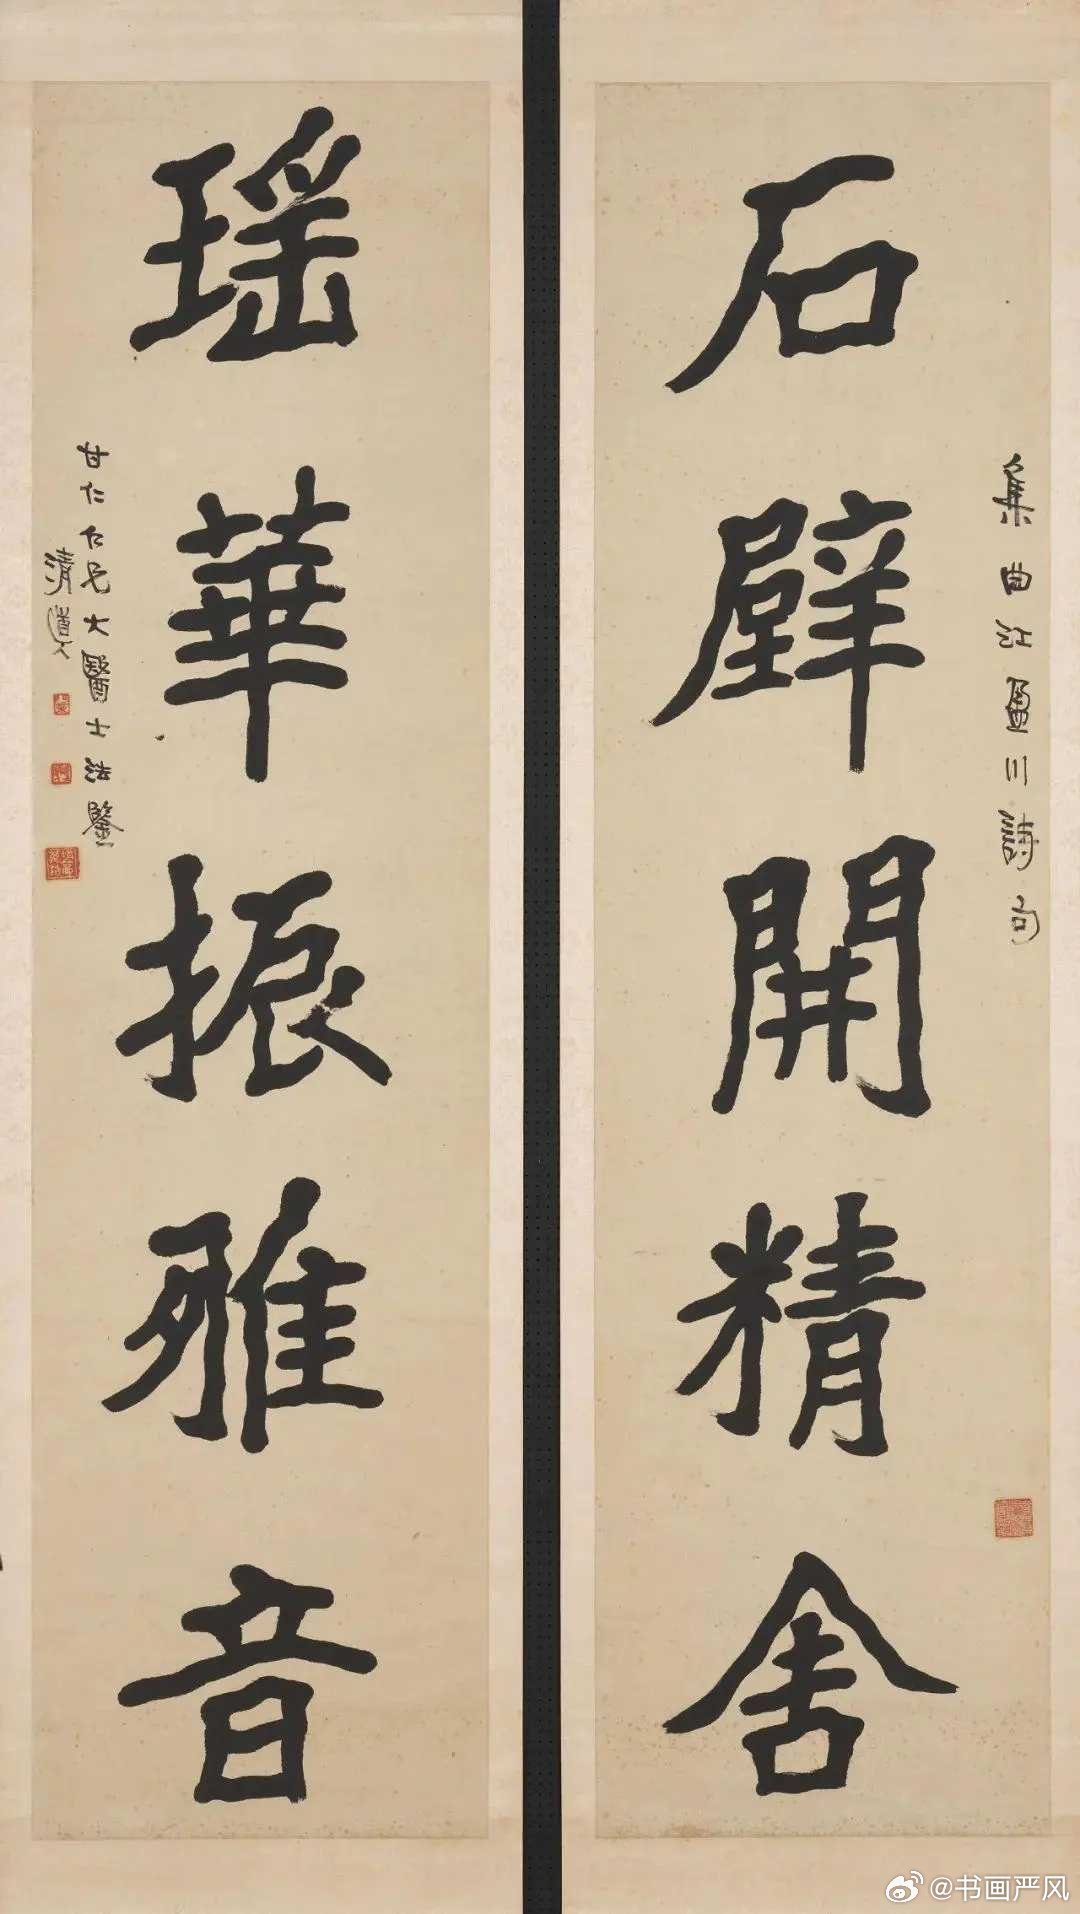 石壁開精舍
集曲江盈川詩句
瑶華振雅音
甘仁仁兄大醫士法鑒
清道人
@书画严风